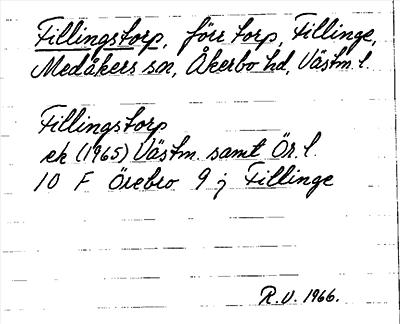 Fillingstorp, förr torp, Fillinge,
Medåkers sn, Åkerbo hd, Västm. l.
Fillingstorp
ek (1965) Västm. samt Ör. l.
10 F Örebro 9 j Fillinge
R.V. 1966.